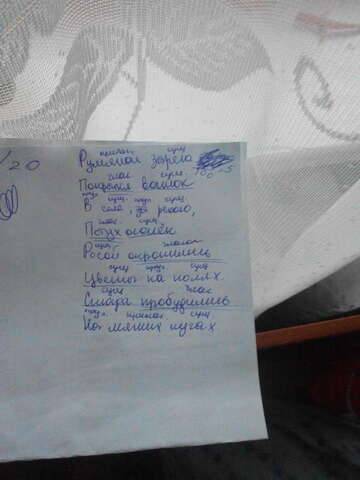 /20
прилаг. сущ
Румяной зарею
глаг. сущ.
Покрылся восток
пред сущ. предл сущ.
В селе, за рекою,
глаг. сущ.
Потух огонёк
сущ. глагол
Росой окропились
сущ предл сущ
Цветы на полях
сущ глаг
Стада пробудились
предл. прилаг сущ
На мягких лугах